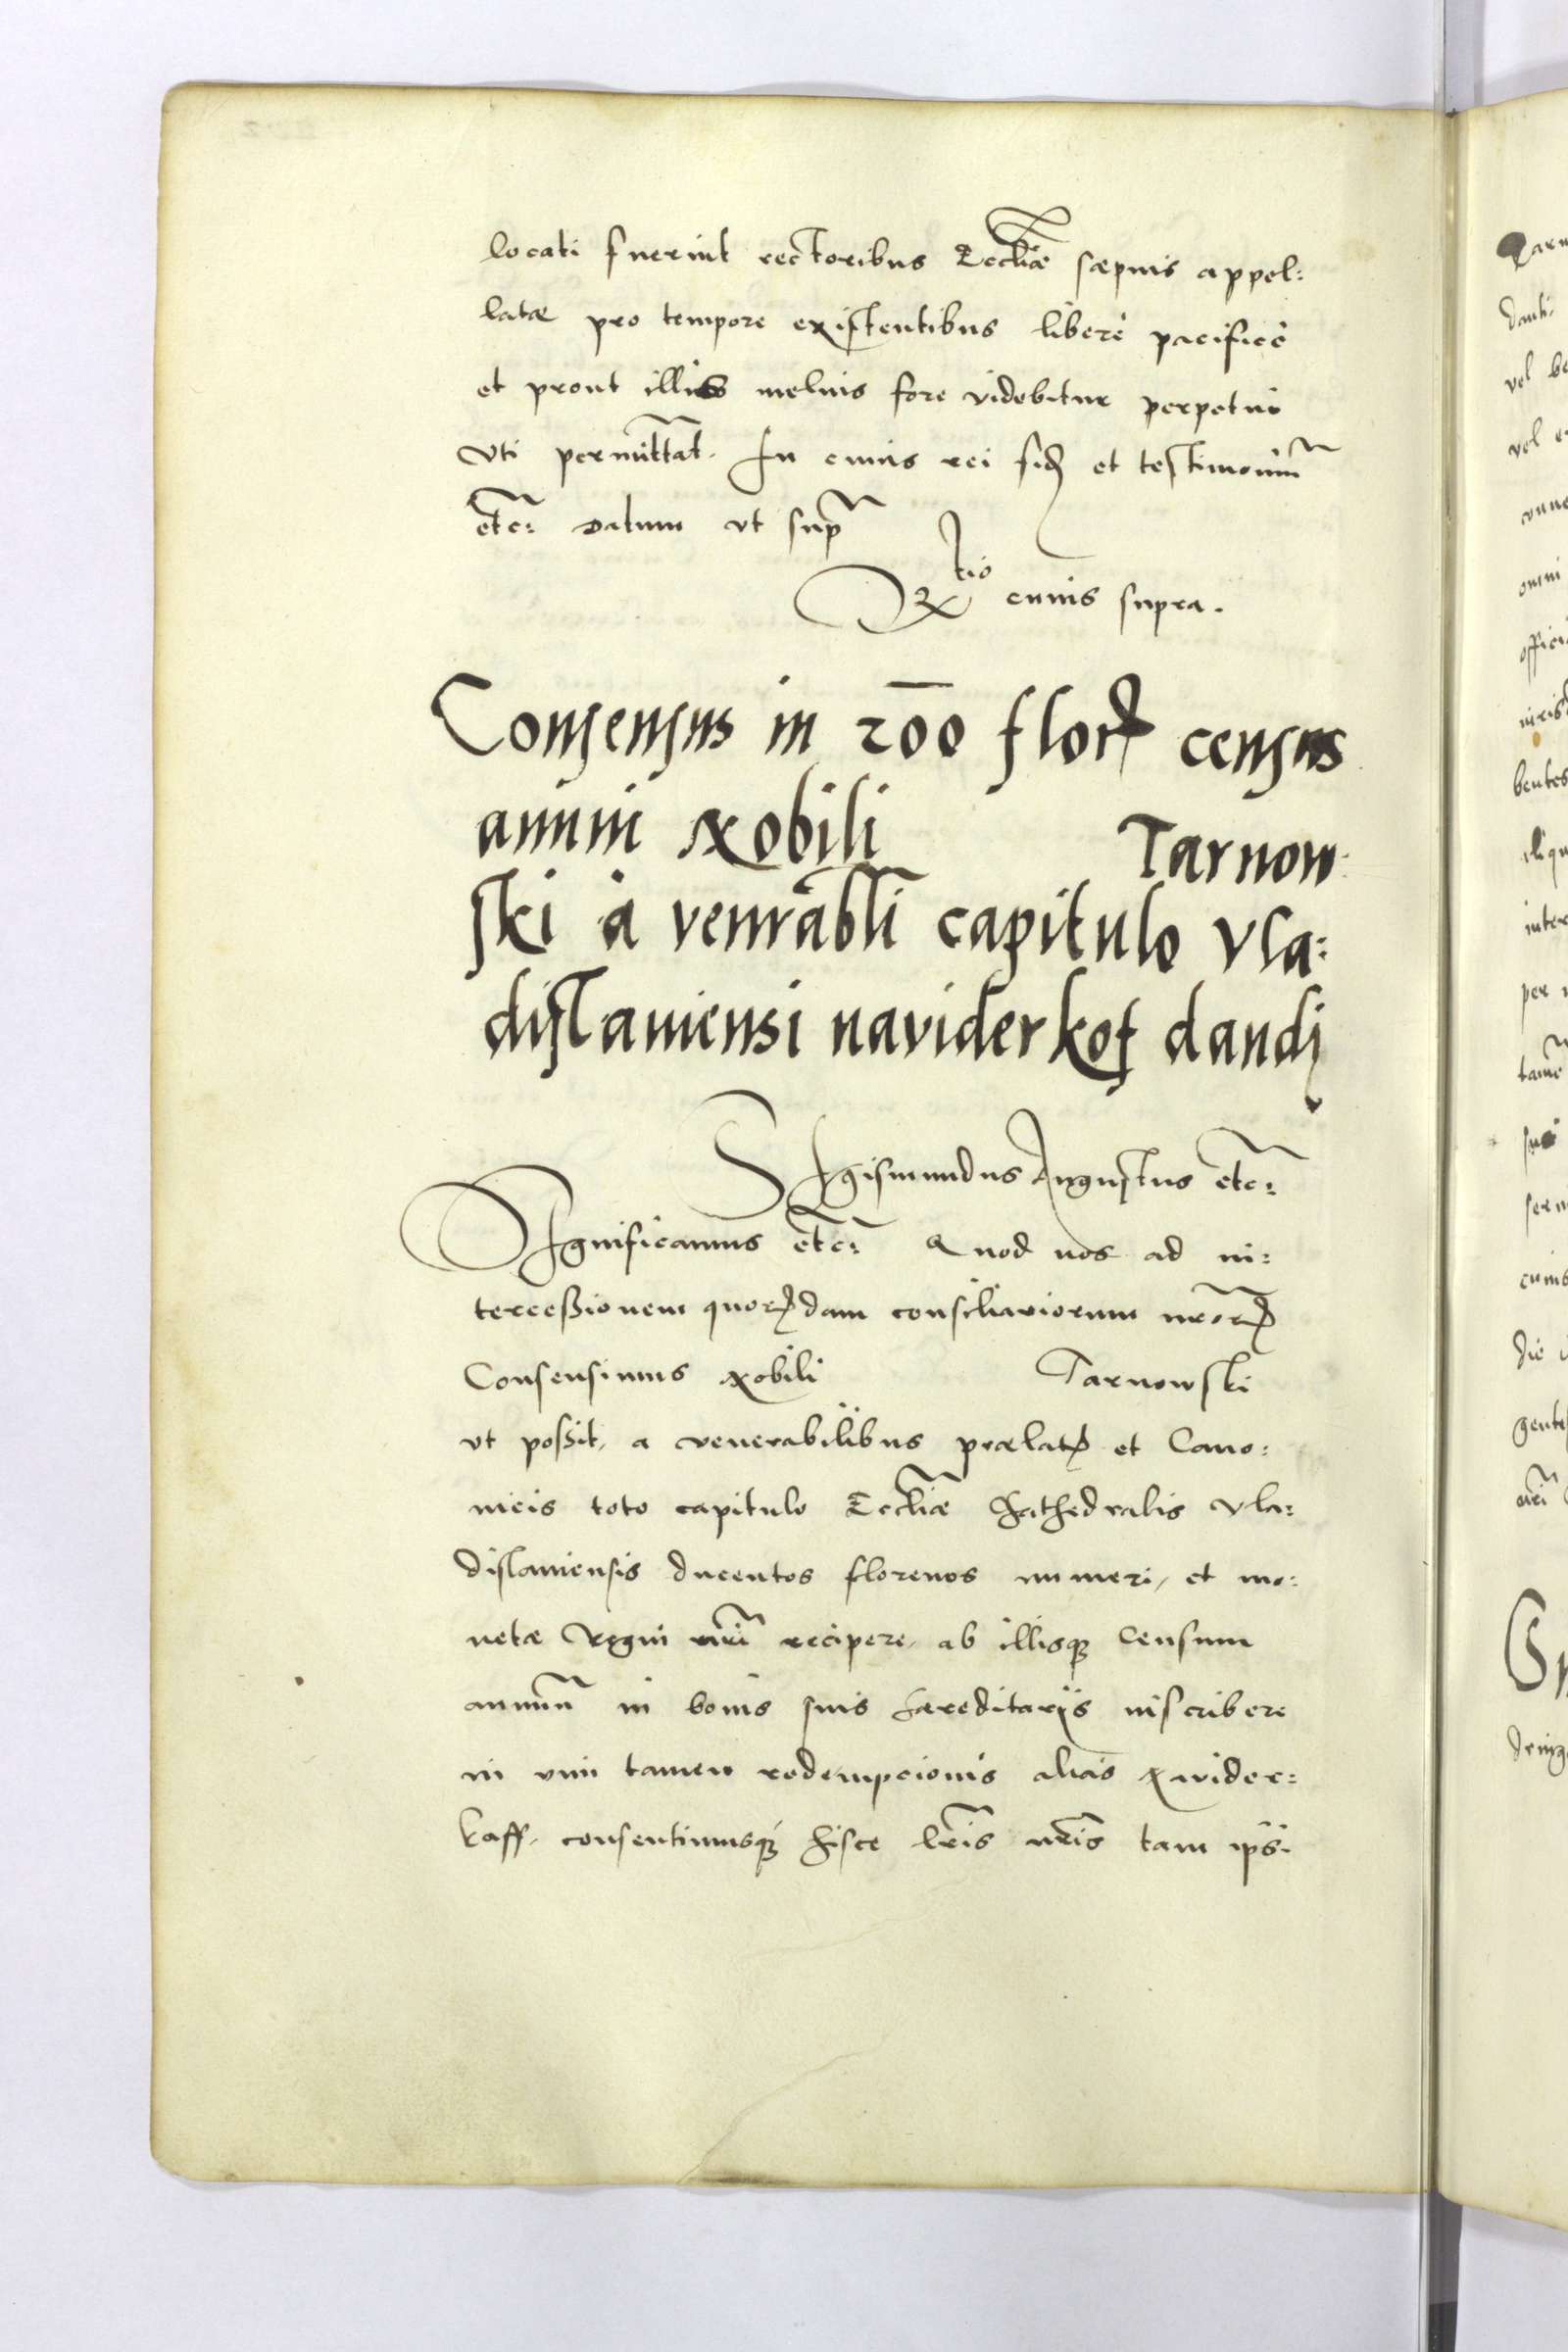 locati fuerint rectoribus Eccliæ sæpius appel:
latæ pro tempore existentibus liberè pacificè
et prout illis melius fore videbitur perpetuo
vti permittat. In cuius rei fidẽ et testimoniũ
etc: Datum vt supˢ
Rtio cuius supra.
Consensus in 200 florꝝ census
annui Nobili Tarnow:
ski à venrãbli capitulo Vla:
dislauiensi naviderkof dandi
SIgismundus Augustus etc:
SIgnificamus etc: Quod nos ad in:
terceßionem quorꝝdam consiliariorum nrorꝝ
Consensimus Nobili Tarnowski
vt poßit, a venerabilibus prælatꝭ et Cano:
nicis toto capitulo Eccliæ Cathedralis Vla:
dislauiensis ducentos florenos numeri, et mo:
netæ Regni nri recipere, ab illisqꝫ Censum
annuũ in bonis suis hæreditarijs inscribere
in vim tamen redempcionis alias Nawider:
kaff. consentimusqꝫ hisce lris nris tam ips: